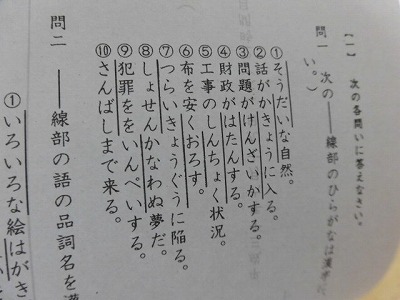 【一】 次の各問いに答えなさい。
問一 次の――線部のひらがなは漢字に
い。)
①そうだいな自然。
②話がかきょうに入る。
③問題がけんざいかする。
④財政がはたんする。
⑤工事のしんちょく状況。
⑥布を安くおろす。
⑦つらいきょうぐうに陥る。
⑧しょせんかなわぬ夢だ。
⑨犯罪ををいんぺいする。
⑩さんばしまで来る。
問二 ――線部の語の品詞名を漢
①いろいろな絵はがき